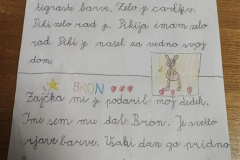 tigraste barve. Zelo je carkljiv.
Piki zelo rad je. Pikija imam zelo
rad. Piki je našel za vedno svoj
dom.
BRON
Zajčka mi je podaril moj dedek.
Ime sem mu dal Bron. Je svetlo
rjave barve. Vsaki dan ga pridno